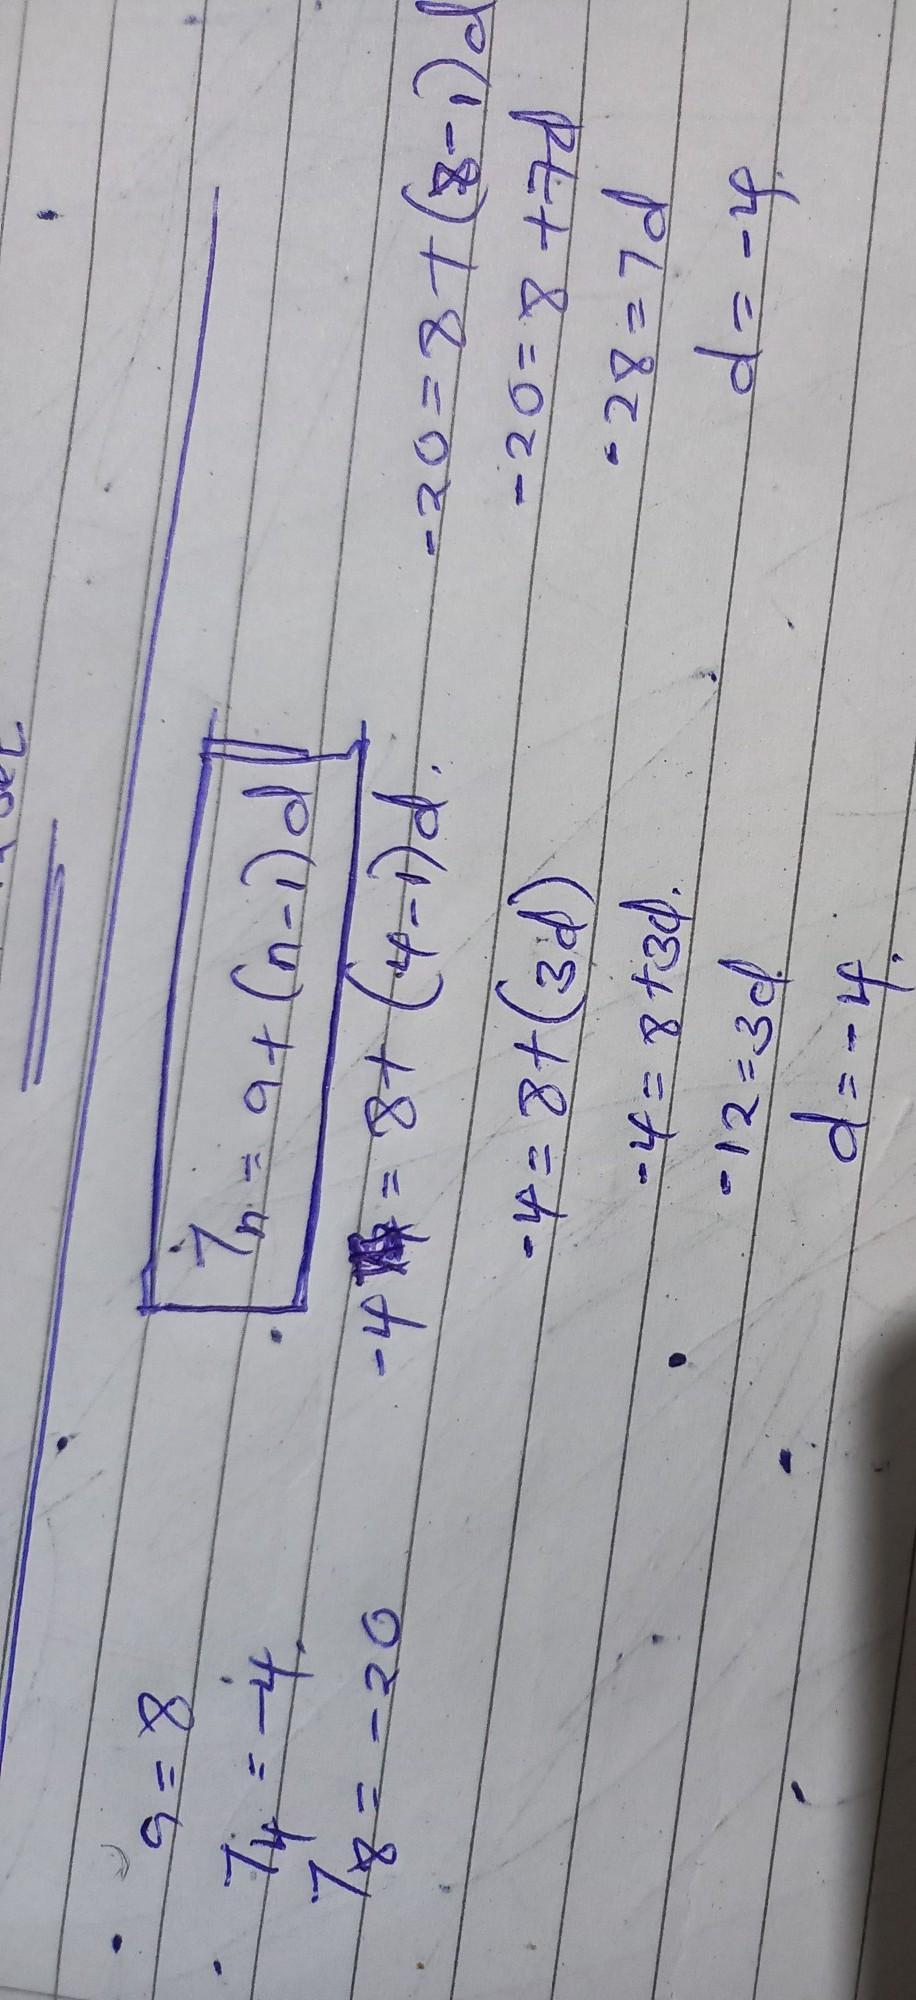 a = 8
T4 = -4.
T8 = -20
Tn = a + (n-1)d
-4 = 8 + (4-1)d.
-4 = 8 + (3d)
-4 = 8 + 3d.
-12 = 3d.
d = -4.
-20 = 8 + (8-1)d
-20 = 8 + 7d
-28 = 7d
d = -4.